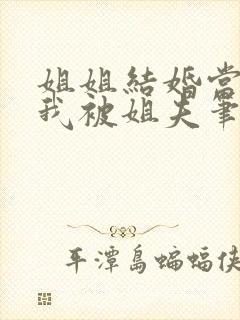 姐姐結婚當
我被姐夫筆
平潭島蝙蝠俠